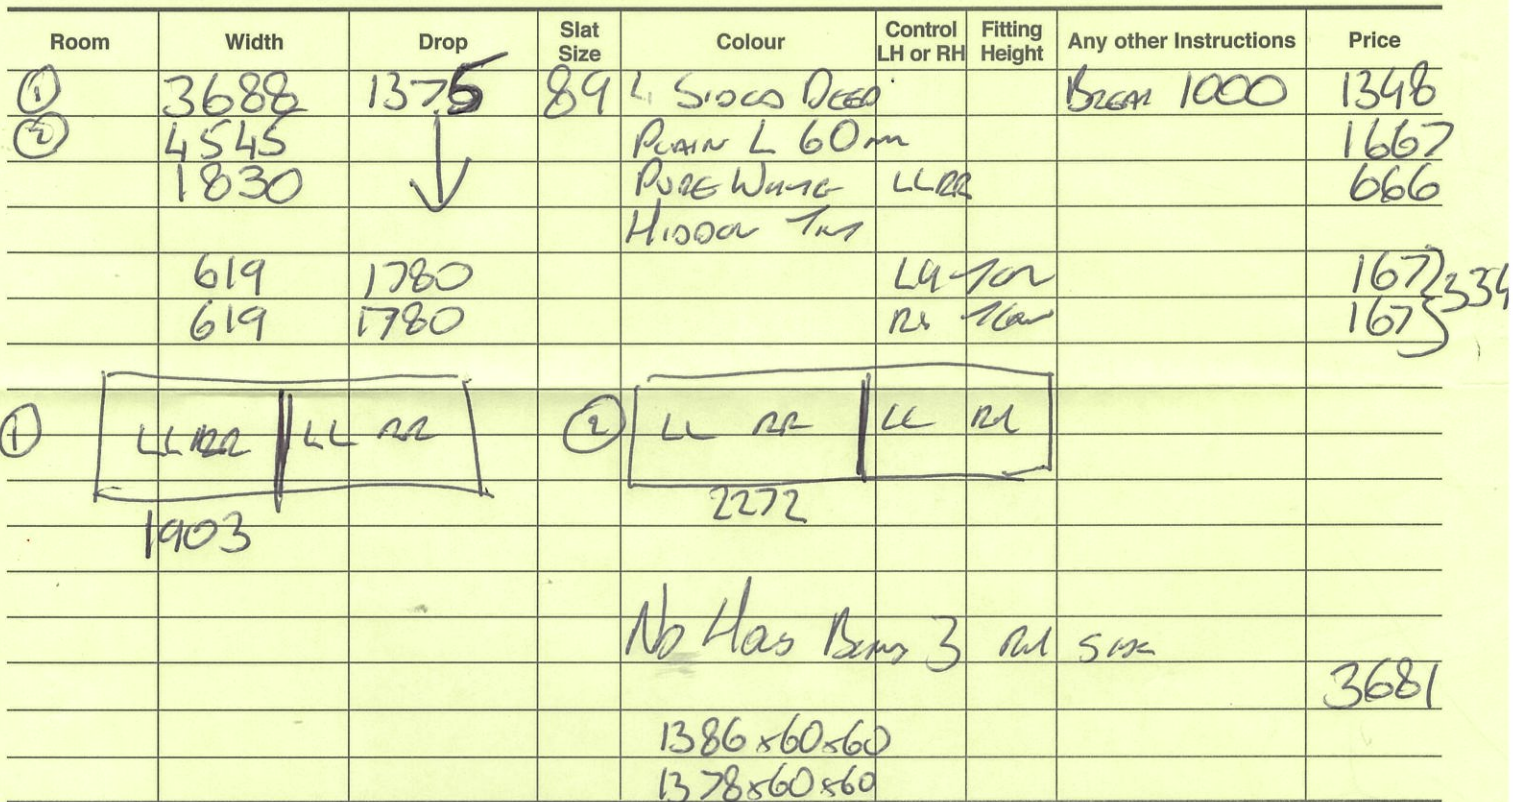 Room Width Drop Slat Size Colour Control LH or RH Fitting Height Any other Instructions Price
① 3688 1375 89 4 Sided Deep Break 1000 1348
② 4545 Plain L 60mm 1667
1830 Pure White LLRR 666
Hidden Tilt
619 1780 LH 167
619 1780 RH 167 334
① LLRR LL RR ② LL RR LL RR
1903 2272
No 3 RH Side
3681
1386x60x60
1378x60x60